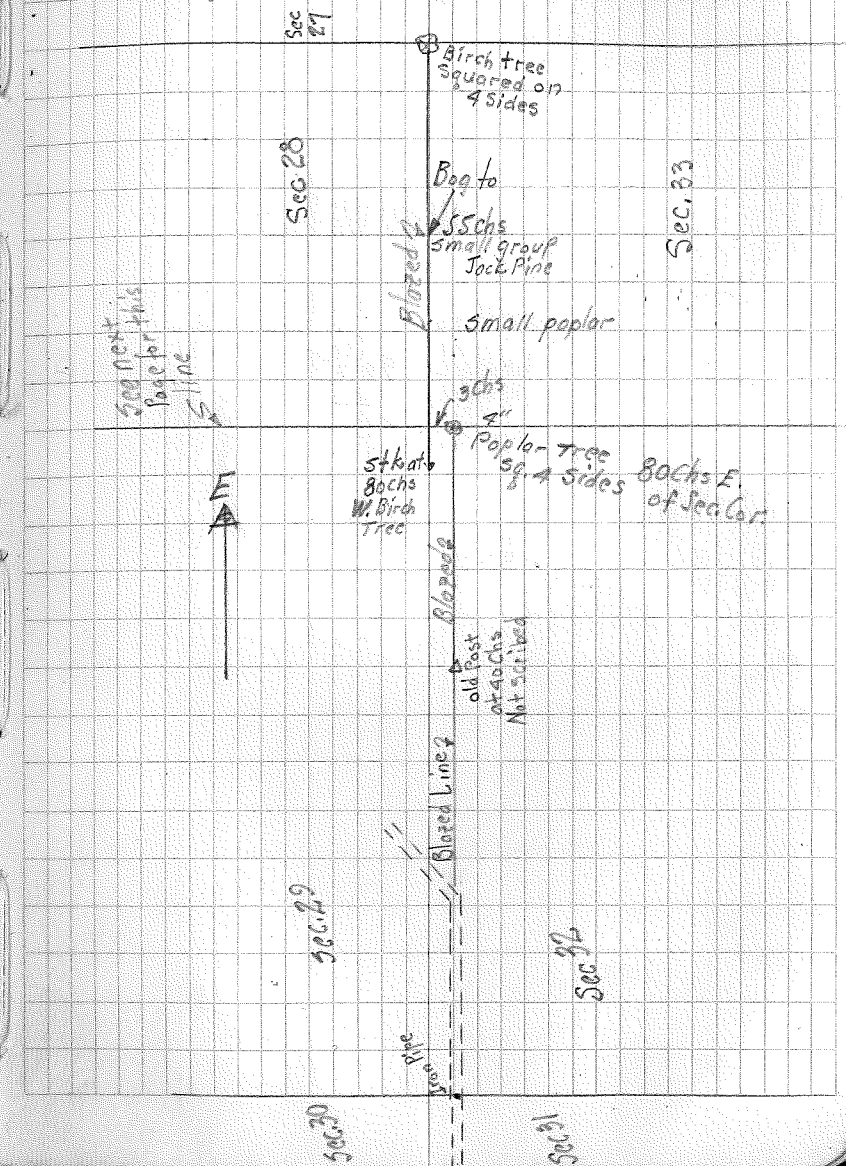 Sec
27
Birch tree
Squared on
4 Sides
Sec. 28
Sec. 33
Bog to
55chs
Small group
Jack Pine
Blazed
Small poplar
See next
Page for this
S line
3chs
4"
Poplar Tree
sq. 4 Sides
80chs E.
of Sec. Cor.
stk at
80chs
W. Birch
Tree
E
Blazed
old Post
at 40chs
Not Scribed
Blazed Line
Sec. 29
Sec 32
Iron Pipe
Sec. 30
Sec 31